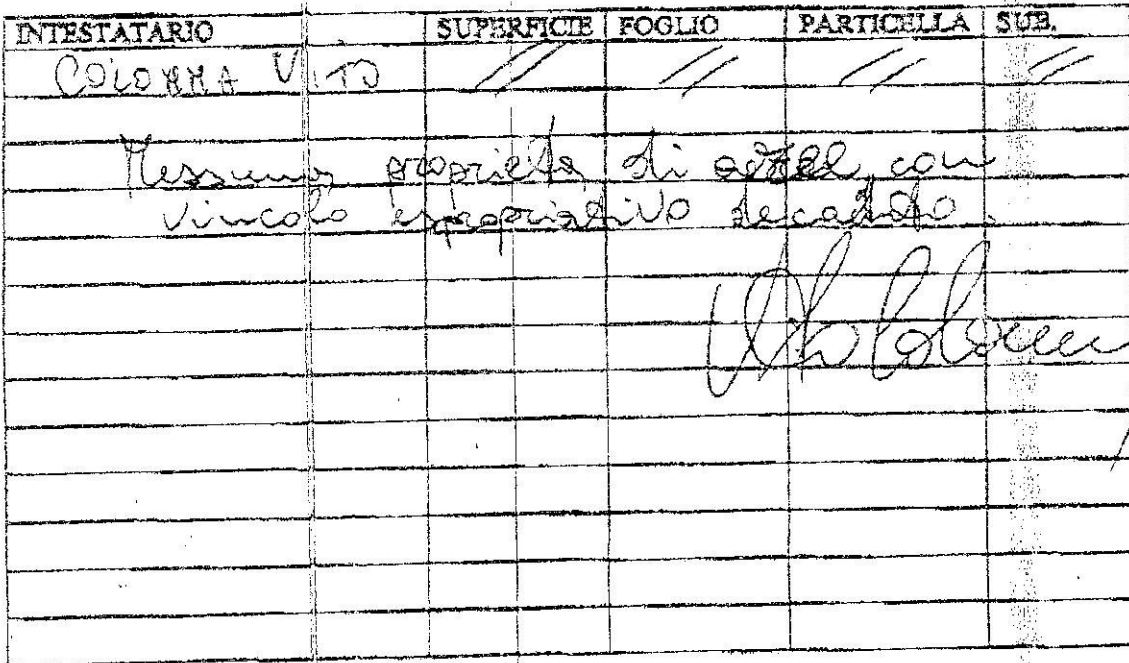 INTESTATARIO SUPERFICIE FOGLIO PARTICELLA SUB.
COLONNA VITO // // // //
Nessuna proprietà di aree con
vincolo espropriativo decaduto.
Vito Colonna